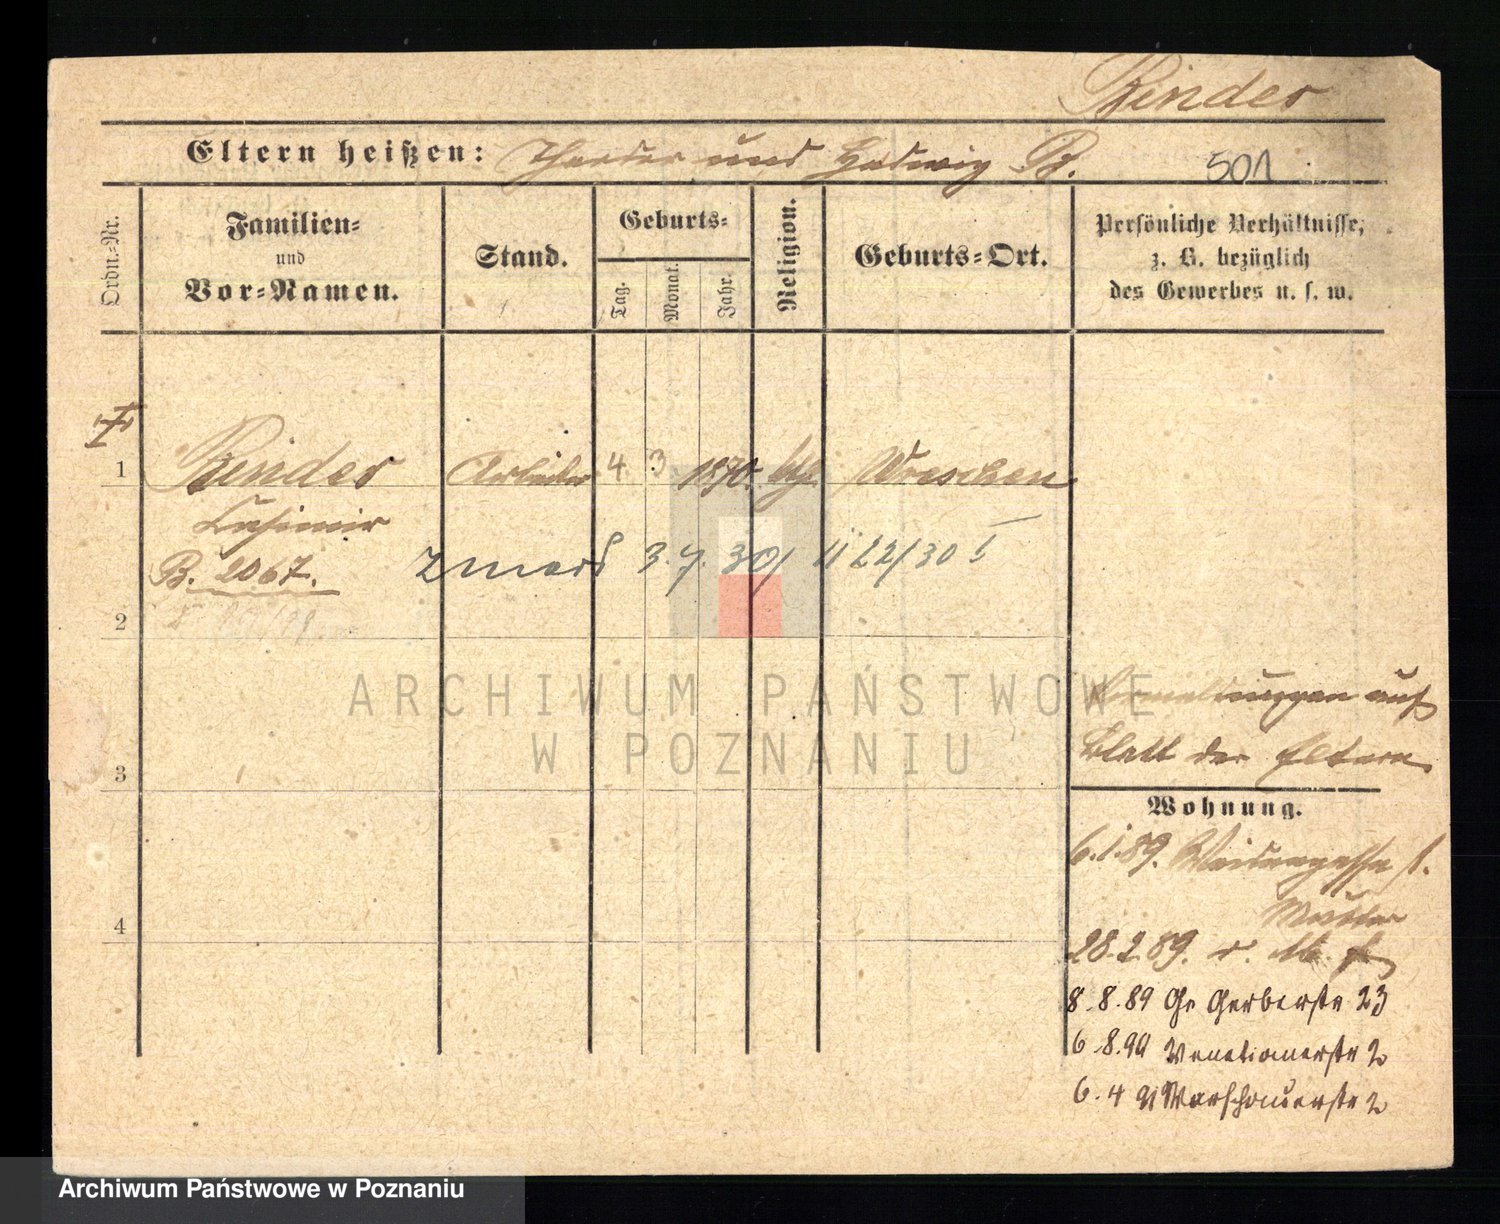 Binder
Eltern heißen: Theodor und Hedwig B.
501
Ordn.-Nr.
Familien-
und
Vor-Namen.
Stand.
Geburts-
Tag.
Monat.
Jahr.
Religion.
Geburts-Ort.
Persönliche Verhältnisse,
z. B. bezüglich
des Gewerbes u. s. w.
1 Binder Arbeiter 4. 3. 1870. kth. Wreschen
Casimir
B. 2067. zmarł 3.7.30/ 1122/30 I
2
3
4
ARCHIWUM PAŃSTWOWE
W POZNANIU
Bemerkungen auf
Blatt der Eltern
Wohnung.
6.1.89. Weidengasse 1.
Mutter
28.2.89. v.
8.8.89 Gr Gerberstr 23
6.8.90 Venetianerstr 2
6.4 91 Warschauerstr 2
Archiwum Państwowe w Poznaniu